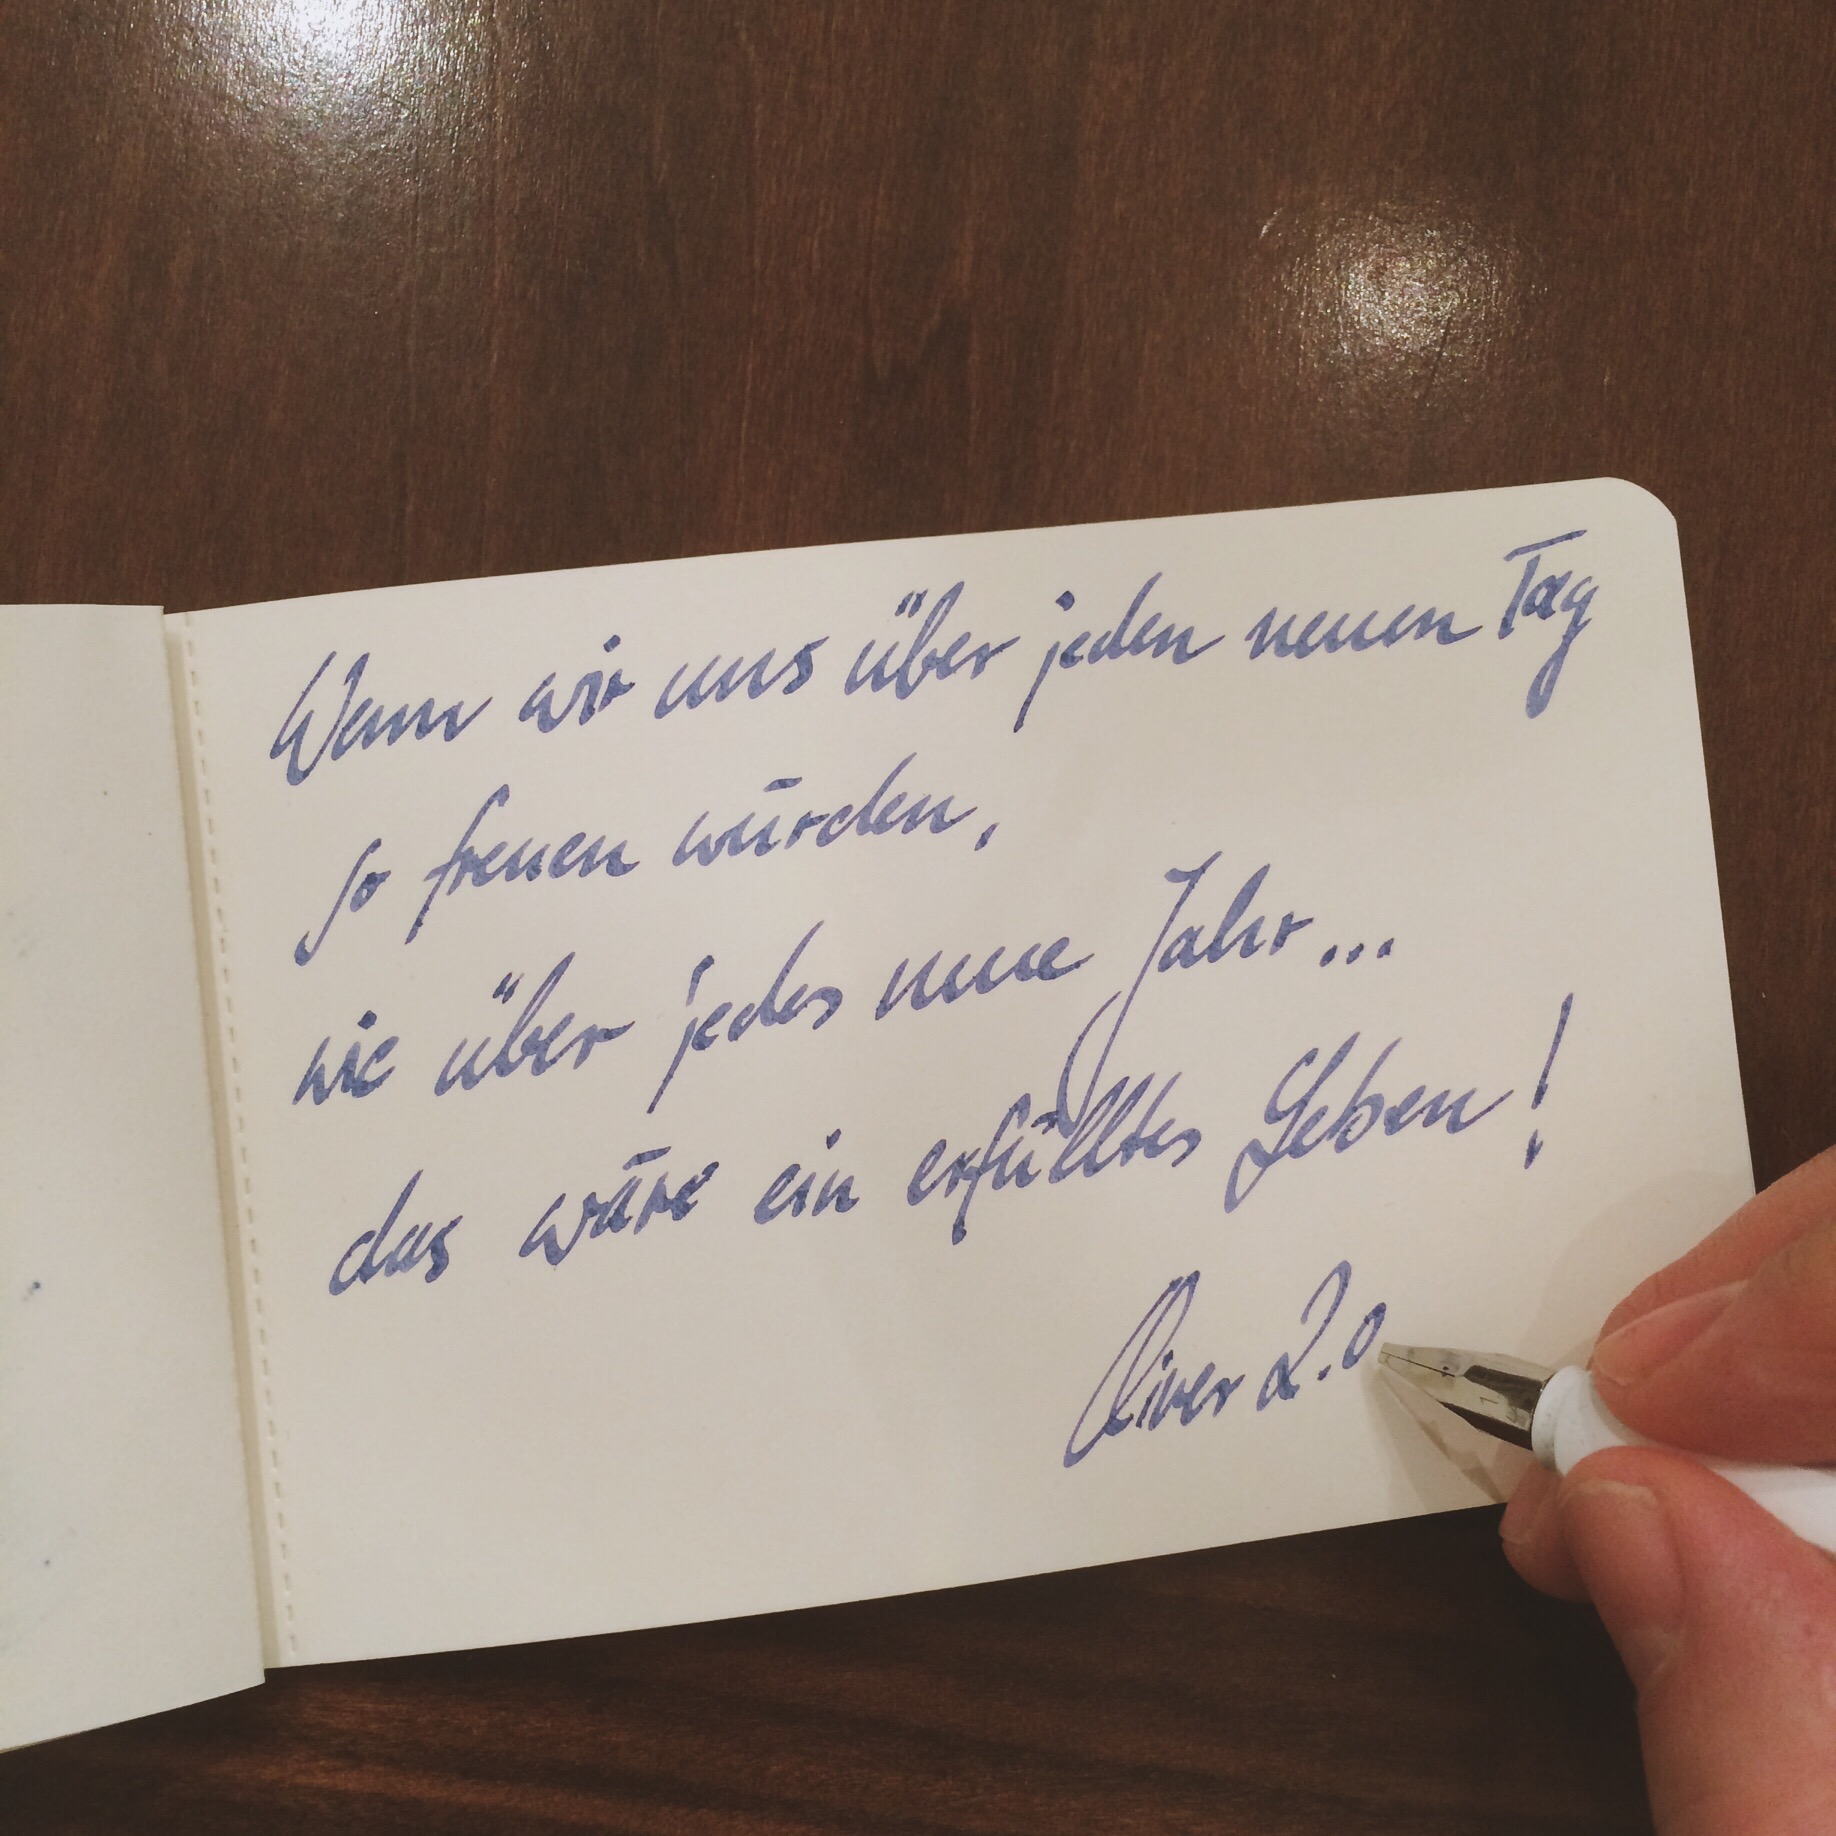 Wenn wir uns über jeden neuen Tag
so freuen würden,
wie über jedes neue Jahr...
das wäre ein erfülltes Leben!
Oliver 2.0